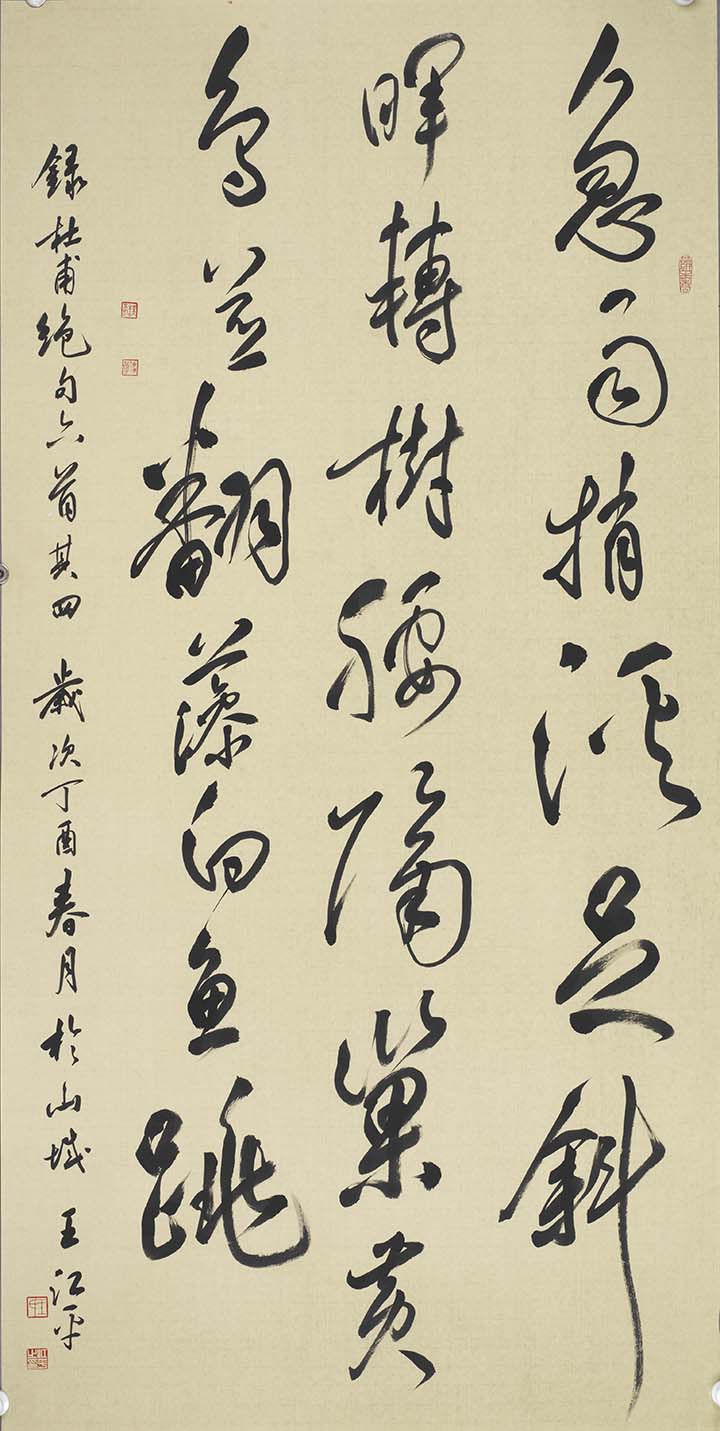 急雨捎溪足斜
暉轉樹腰隔巢黄
鳥並翻藻白魚跳
録杜甫絶句六首其四 歲次丁酉春月於山城 王江平